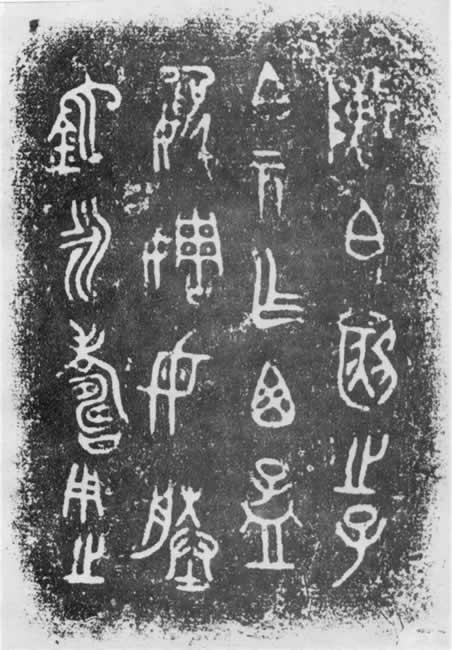 陳白之子
白元乍西孟
媯婤母塍
鉈永壽用之